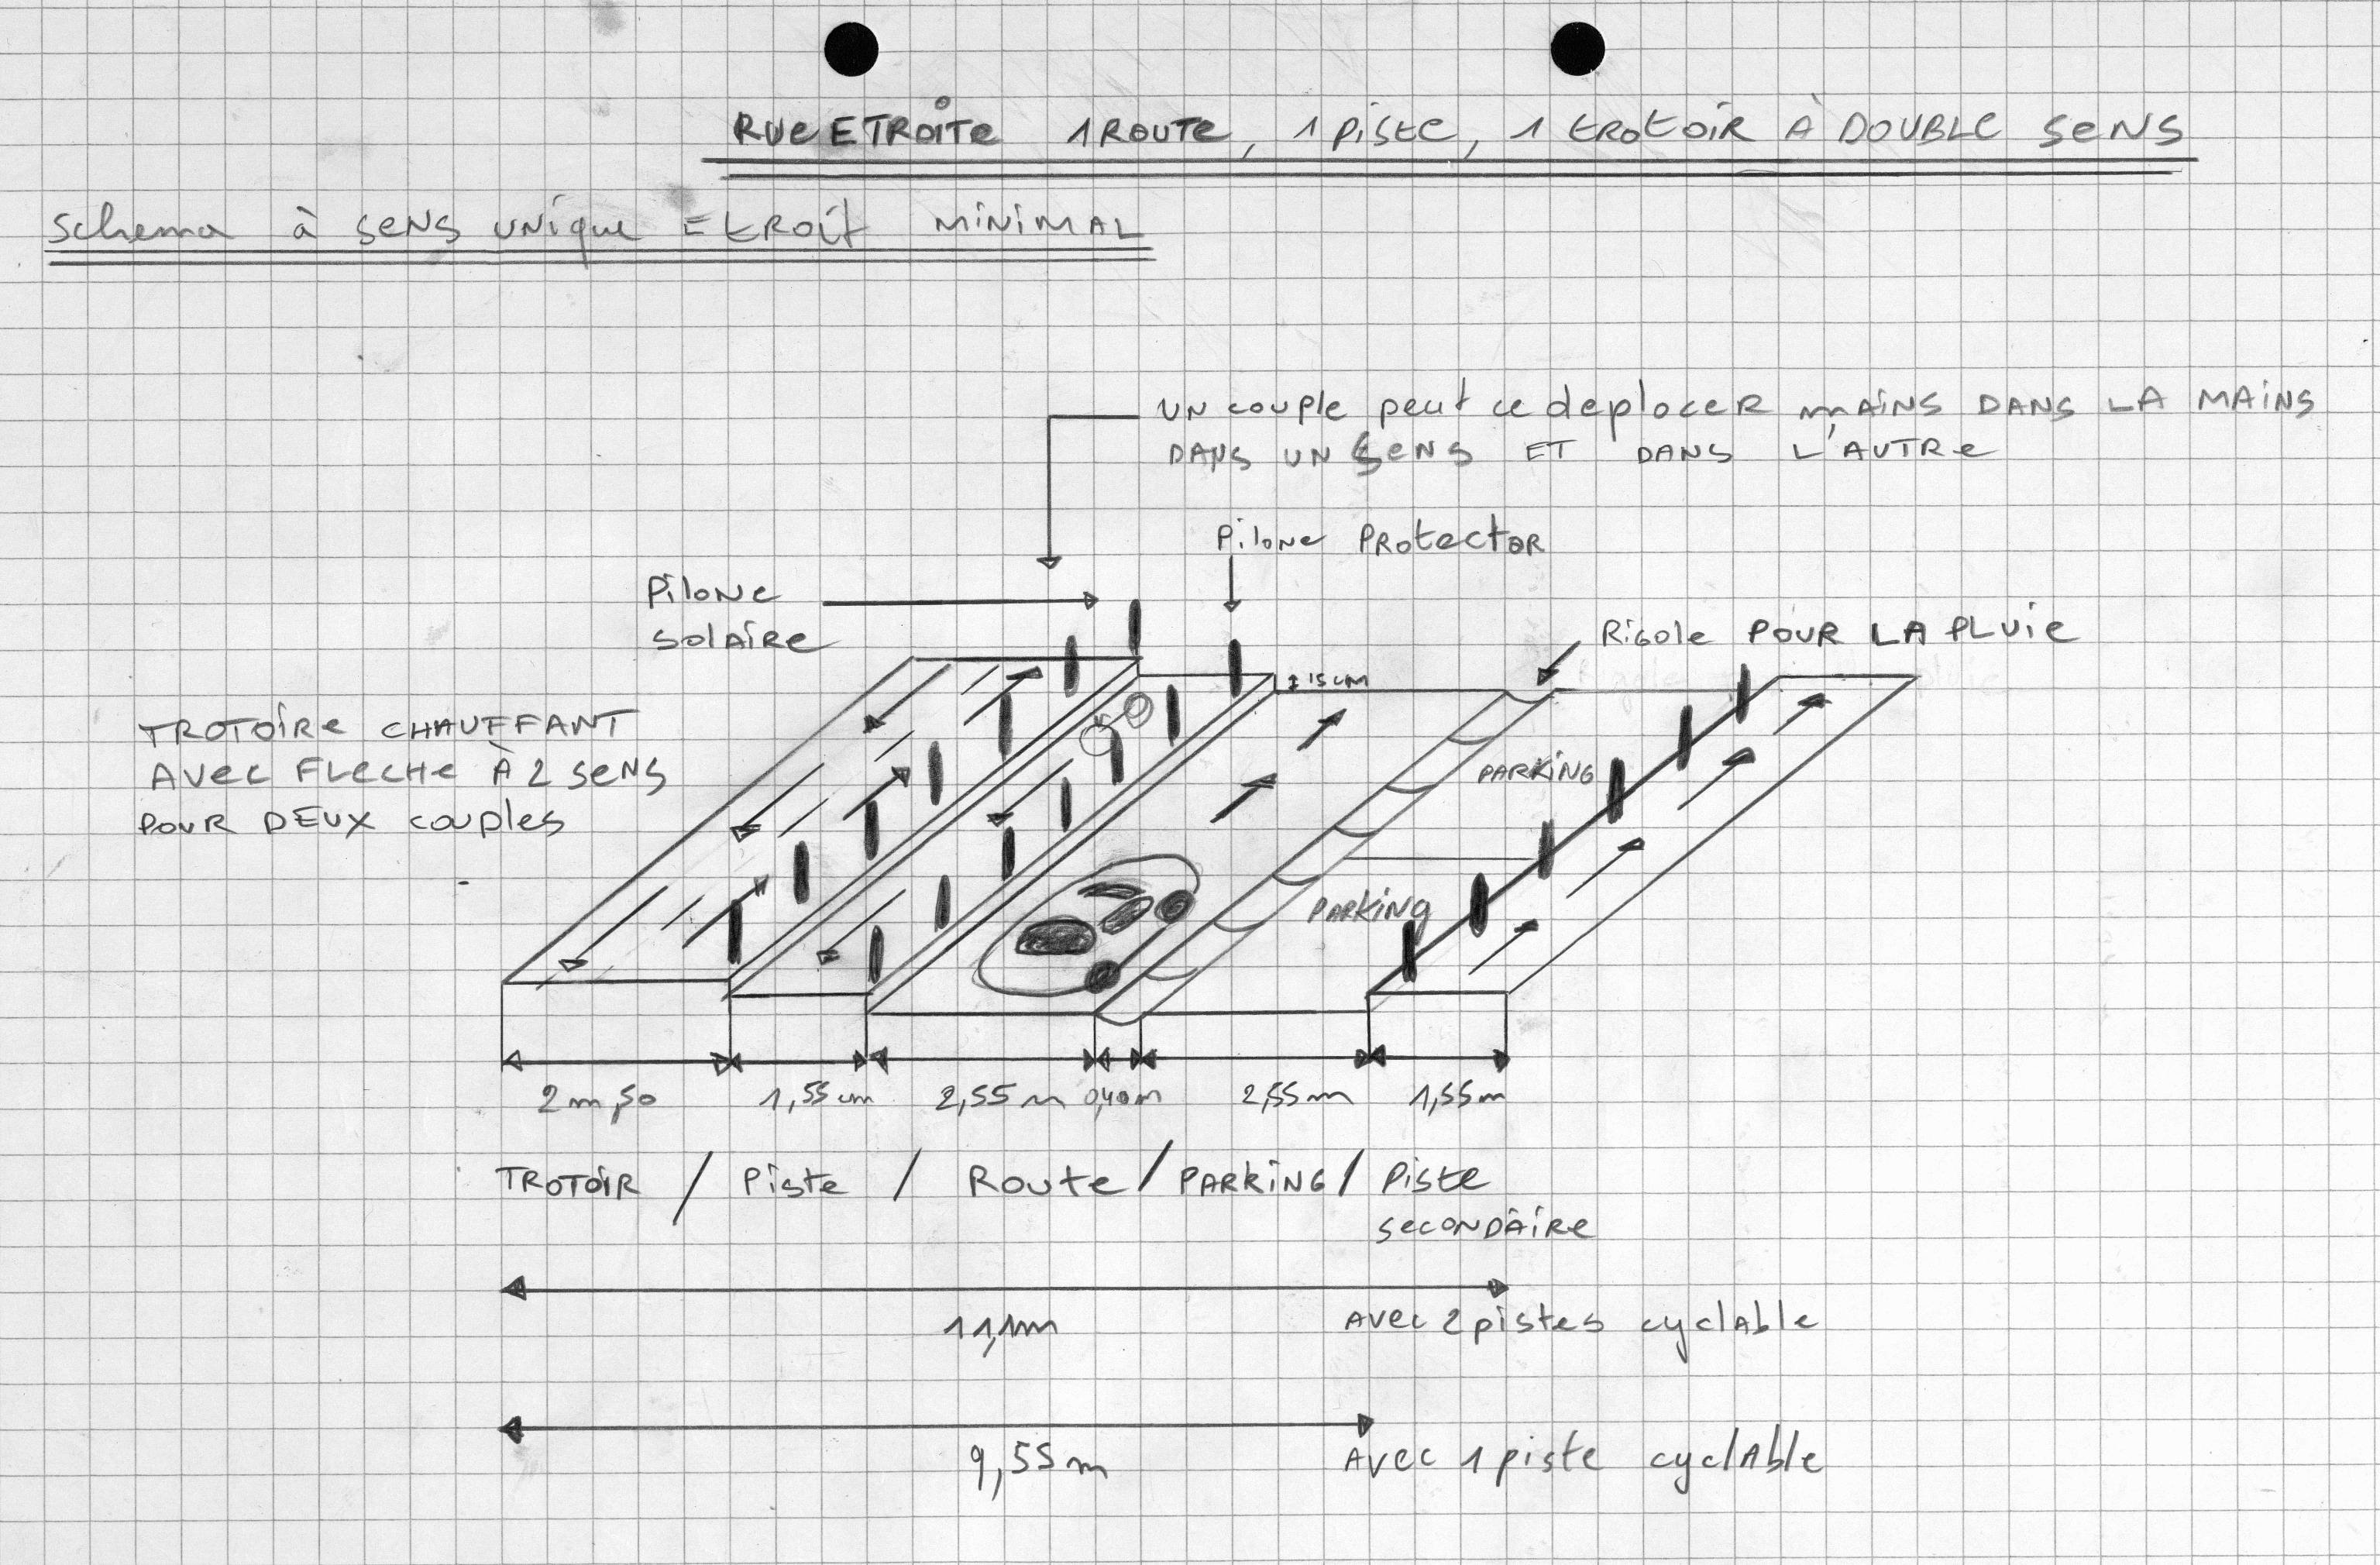 RUE ETROITE 1 ROUTE, 1 PISTE, 1 TROTOIR À DOUBLE SENS
Schema à SENS UNIQUE ETROIT MINIMAL
UN couple peut ce deplacer MAINS DANS LA MAINS
DANS UN SENS ET DANS L'AUTRE
Pilone PROTECTOR
Pilone
SOLAIRE
RIGOLE POUR LA PLUIE
15 cm
TROTOIRE CHAUFFANT
AVEC FLECHE À 2 SENS
POUR DEUX COUPLES
PARKING
PARKING
2 m,50 1,55 cm 2,55 m 0,40 m 2,55 m 1,55 m
TROTOIR / Piste / Route / PARKING / PISTE
SECONDAIRE
11,1m AVEC 2 pistes cyclable
9,55 m AVEC 1 piste cyclable